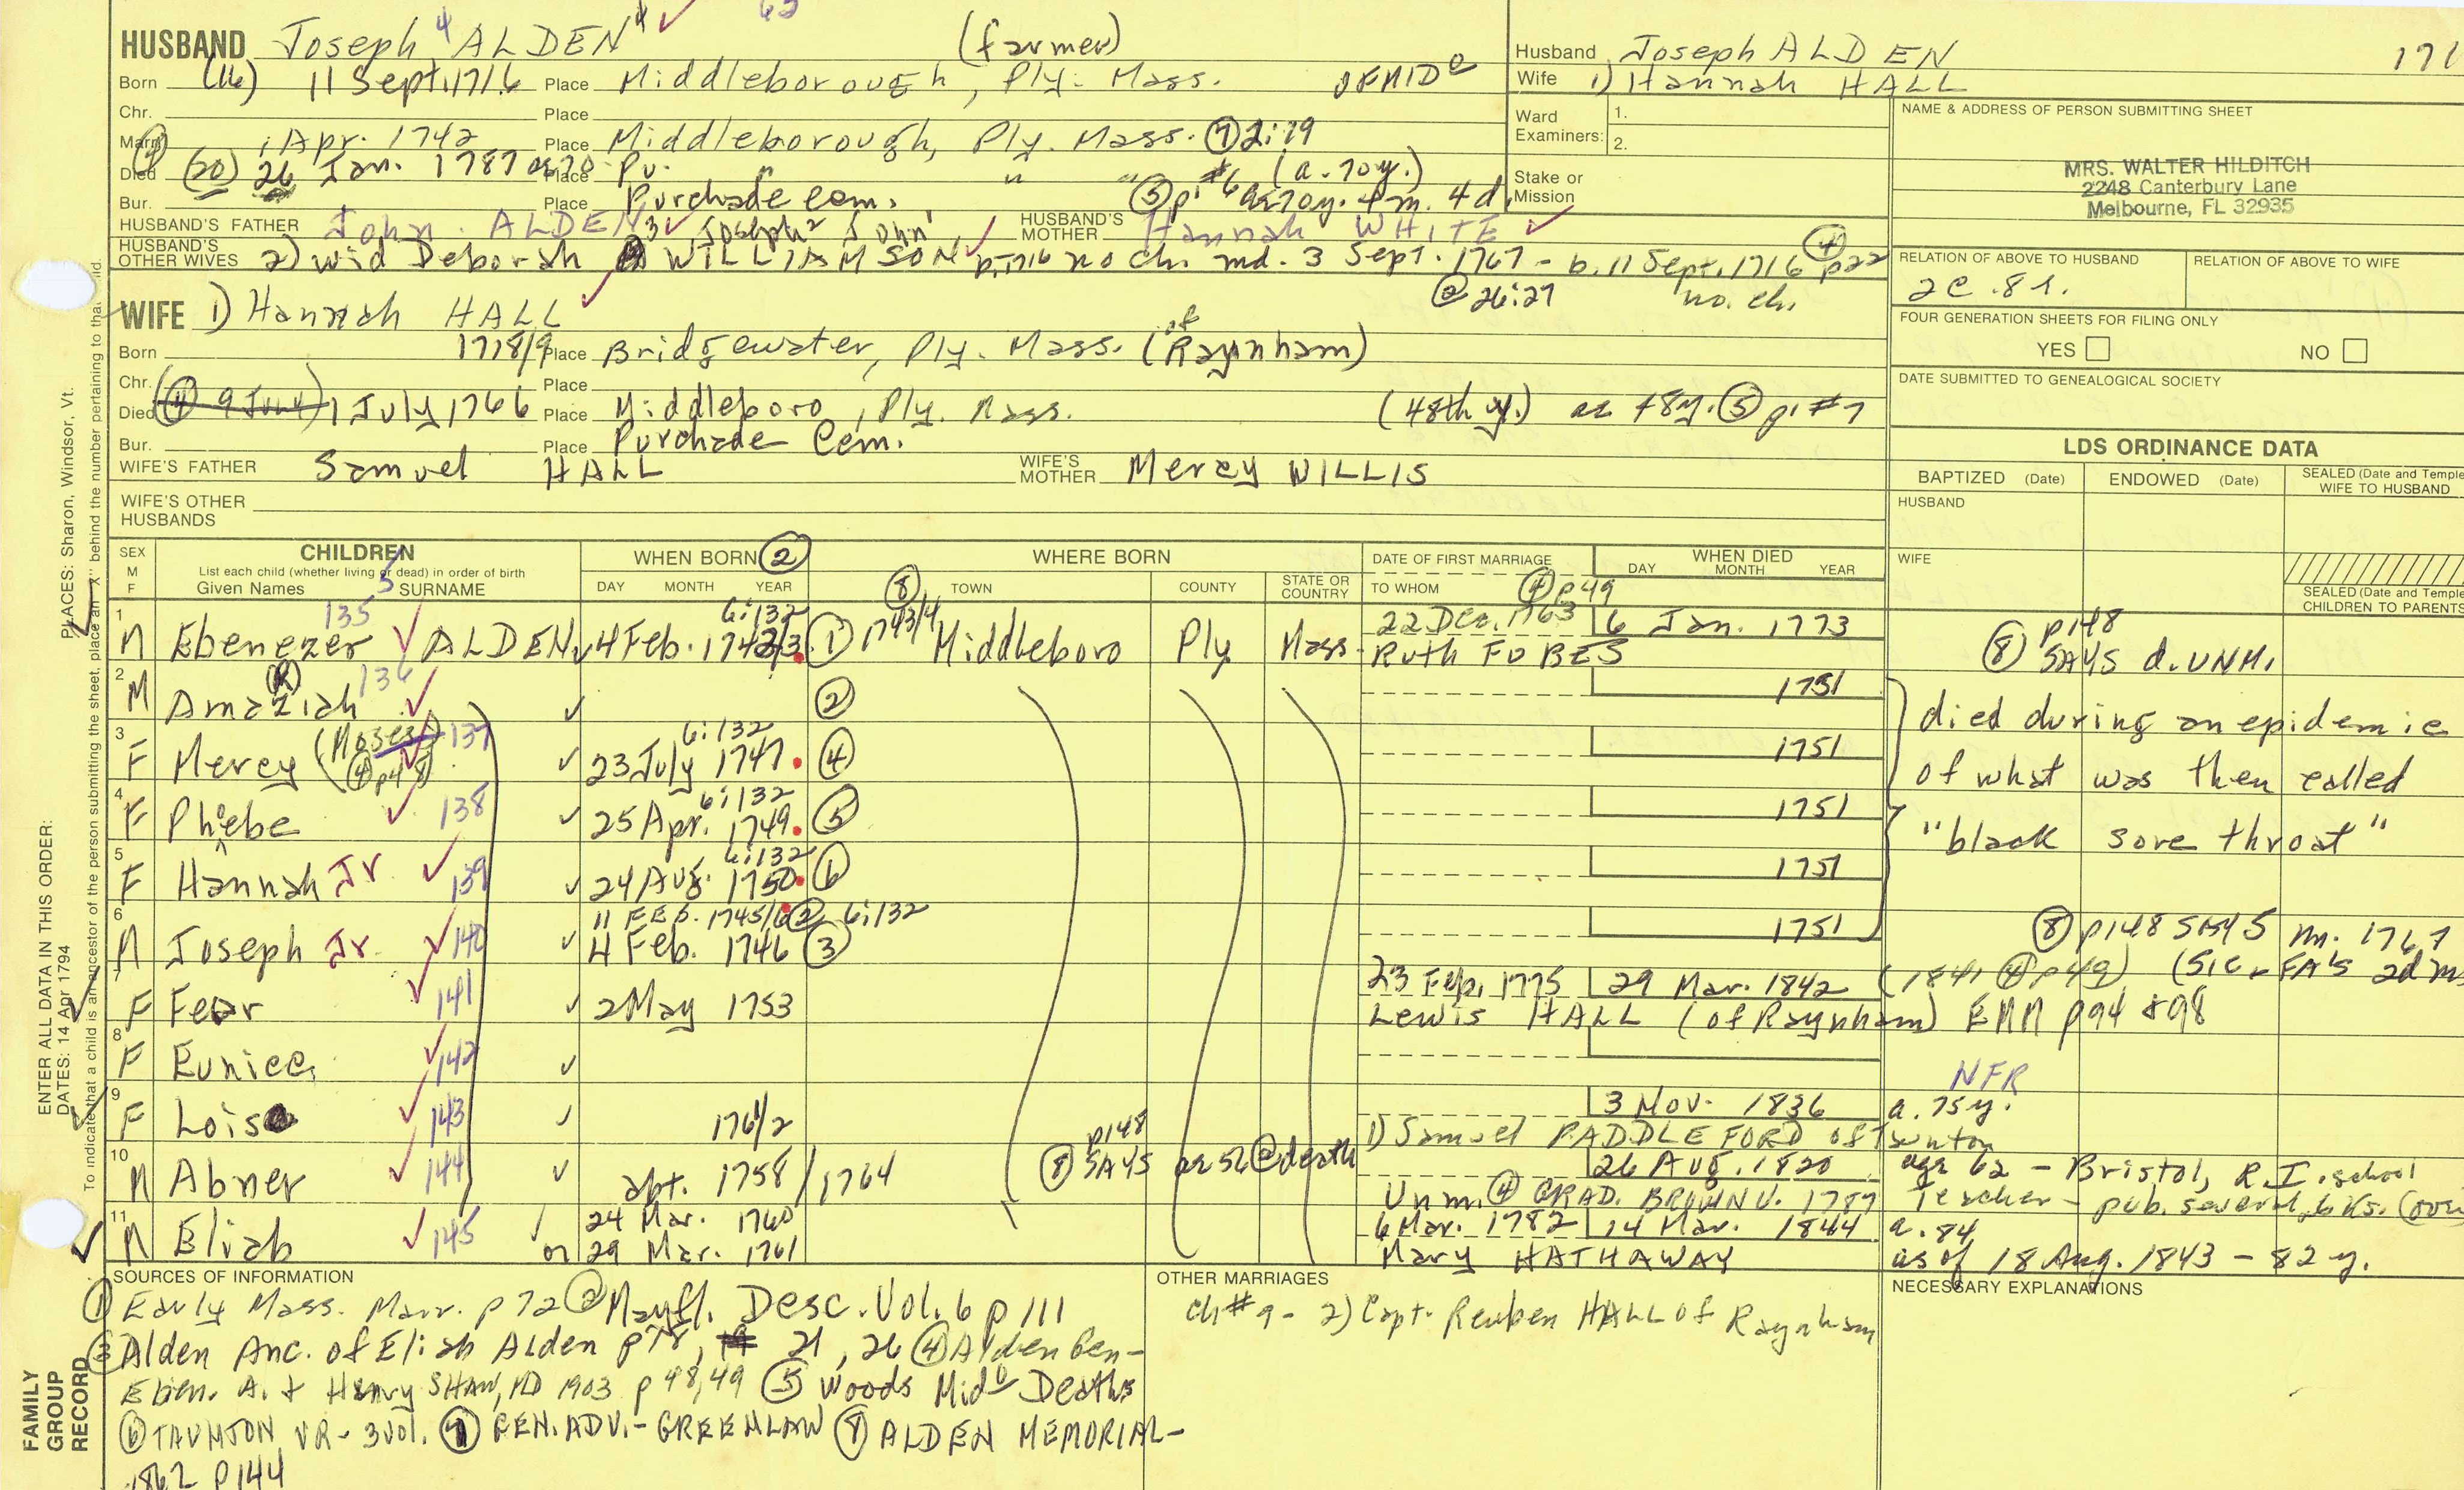 HUSBAND Joseph 4 ALDEN (farmer)
Born (16) 11 Sept. 1716 Place Middleborough, Ply. Mass. OF MID
Chr. Place
Marr. Apr. 1742 Place Middleborough, Ply. Mass. 7 2:179
Died (20) 26 Jan. 1787 ae 70 Place " " (a. 70y.)
Bur. Place Purchade Cem. 5 p. #6 ae 70y. 4m. 4d.
HUSBAND'S FATHER John ALDEN 3 Joseph 2 John 1 HUSBAND'S MOTHER Hannah WHITE
HUSBAND'S OTHER WIVES 2) Wid Deborah WILLIAMSON b. 1716 no ch. md. 3 Sept. 1767 - b. 11 Sept. 1716 4 p22
2 26:27 no. ch.
WIFE 1) Hannah HALL
Born 1718/9 Place Bridgewater, Ply. Mass. (of Raynham)
Chr. Place
Died (4 9 July) 1 July 1766 Place Middleboro, Ply. Mass. (48th y.) ae 48y. 5 p. #7
Bur. Place Purchade Cem.
WIFE'S FATHER Samuel HALL WIFE'S MOTHER Mercy WILLIS
WIFE'S OTHER HUSBANDS
Husband Joseph ALDEN 171
Wife 1) Hannah HALL
Ward Examiners: 1.
2.
Stake or Mission
NAME & ADDRESS OF PERSON SUBMITTING SHEET
MRS. WALTER HILDITCH
2248 Canterbury Lane
Melbourne, FL 32935
RELATION OF ABOVE TO HUSBAND RELATION OF ABOVE TO WIFE
2C.8r.
FOUR GENERATION SHEETS FOR FILING ONLY
YES NO
DATE SUBMITTED TO GENEALOGICAL SOCIETY
LDS ORDINANCE DATA
BAPTIZED (Date) ENDOWED (Date) SEALED (Date and Temple) WIFE TO HUSBAND
HUSBAND
WIFE
SEALED (Date and Temple) CHILDREN TO PARENTS
SEX M F CHILDREN WHEN BORN 2 WHERE BORN DATE OF FIRST MARRIAGE WHEN DIED
List each child (whether living or dead) in order of birth
Given Names 5 SURNAME DAY MONTH YEAR 8 TOWN COUNTY STATE OR COUNTRY TO WHOM 4 p49 DAY MONTH YEAR
1 M Ebenezer 135 ALDEN 4 Feb. 1742/3 6:132 1 1743/4 Middleboro Ply Mass. 22 Dec. 1763 6 Jan. 1773 8 p148 SAYS d. UNM.
Ruth FOBES
2 M Amaziah (R) 136 2 1751
3 F Mercy (Moses) 4 p48 137 6:132 23 July 1747 4 1751
4 F Phebe 138 6:132 25 Apr. 1749 5 1751
5 F Hannah Jr. 139 6:132 24 Aug. 1750 6 1751
died during an epidemic
of what was then called
"black sore throat"
6 M Joseph Jr. 140 11 FEB. 1745/6 2 6:132 4 Feb. 1746 3 1751 8 p148 SAYS m. 1767
7 F Fear 141 2 May 1753 23 Feb. 1775 29 Mar. 1842 (1841 4 p49) (Sic - FA's 2d m
Lewis HALL (of Raynham) EMM p94 + 98
8 F Eunice 142 NFR
9 F Lois 143 1761/2 3 Nov. 1836 a. 75y.
1) Samuel PADDLEFORD of Taunton
10 M Abner 144 abt. 1758/1764 8 p148 SAYS ae 56 @ death 26 Aug. 1820 age 62 - Bristol, R.I. school
Unm. 4 GRAD. BROWN U. 1787 Teacher - pub. several bks. (over
11 M Eliab 145 24 Mar. 1760 6 Mar. 1782 14 Mar. 1844 a. 84
or 29 Mar. 1761 Mary HATHAWAY as of 18 Aug. 1843 - 82 y.
SOURCES OF INFORMATION
1 Early Mass. Marr. p 72 2 Mayfl. Desc. Vol. 6 p 111
3 Alden Anc. of Eliab Alden p 78, 21, 26 4 Alden Gen-
Eben. A. & Henry SHAW, MD 1903 p 48, 49 5 Woods Mido Deaths
6 TAUNTON VR - 3 vol. 7 GEN. ADV. - GREENLAW 8 ALDEN MEMORIAL -
1862 p144
OTHER MARRIAGES
Ch #9 - 2) Capt. Reuben HALL of Raynham
NECESSARY EXPLANATIONS
PLACES: Sharon, Windsor, Vt.
ENTER ALL DATA IN THIS ORDER:
DATES: 14 Apr 1794
To indicate that a child is an ancestor of the person submitting the sheet, place an "X" behind the number pertaining to that child.
FAMILY GROUP RECORD